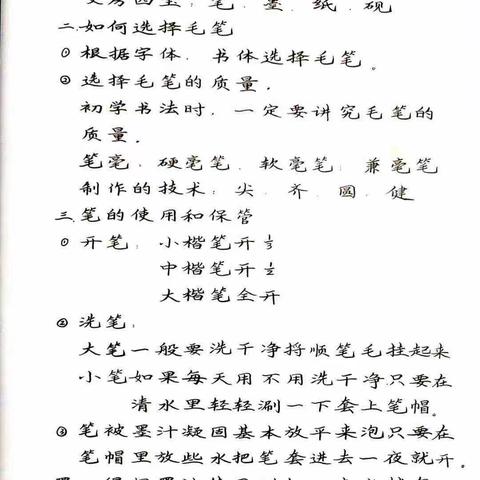 文房四宝：笔、墨、纸、砚
二、如何选择毛笔
① 根据字体、书体选择毛笔。
② 选择毛笔的质量。
初学书法时，一定要讲究毛笔的
质量。
笔毫：硬毫笔、软毫笔、兼毫笔
制作的技术：尖、齐、圆、健
三、笔的使用和保管
① 开笔：小楷笔开 ⅓
中楷笔开 ½
大楷笔全开
② 洗笔：
大笔一般要洗干净捋顺笔毛挂起来
小笔如果每天用不用洗干净只要在
清水里轻轻涮一下套上笔帽。
③ 笔被墨汁凝固基本放平来泡只要在
笔帽里放些水把笔套进去一夜就开。